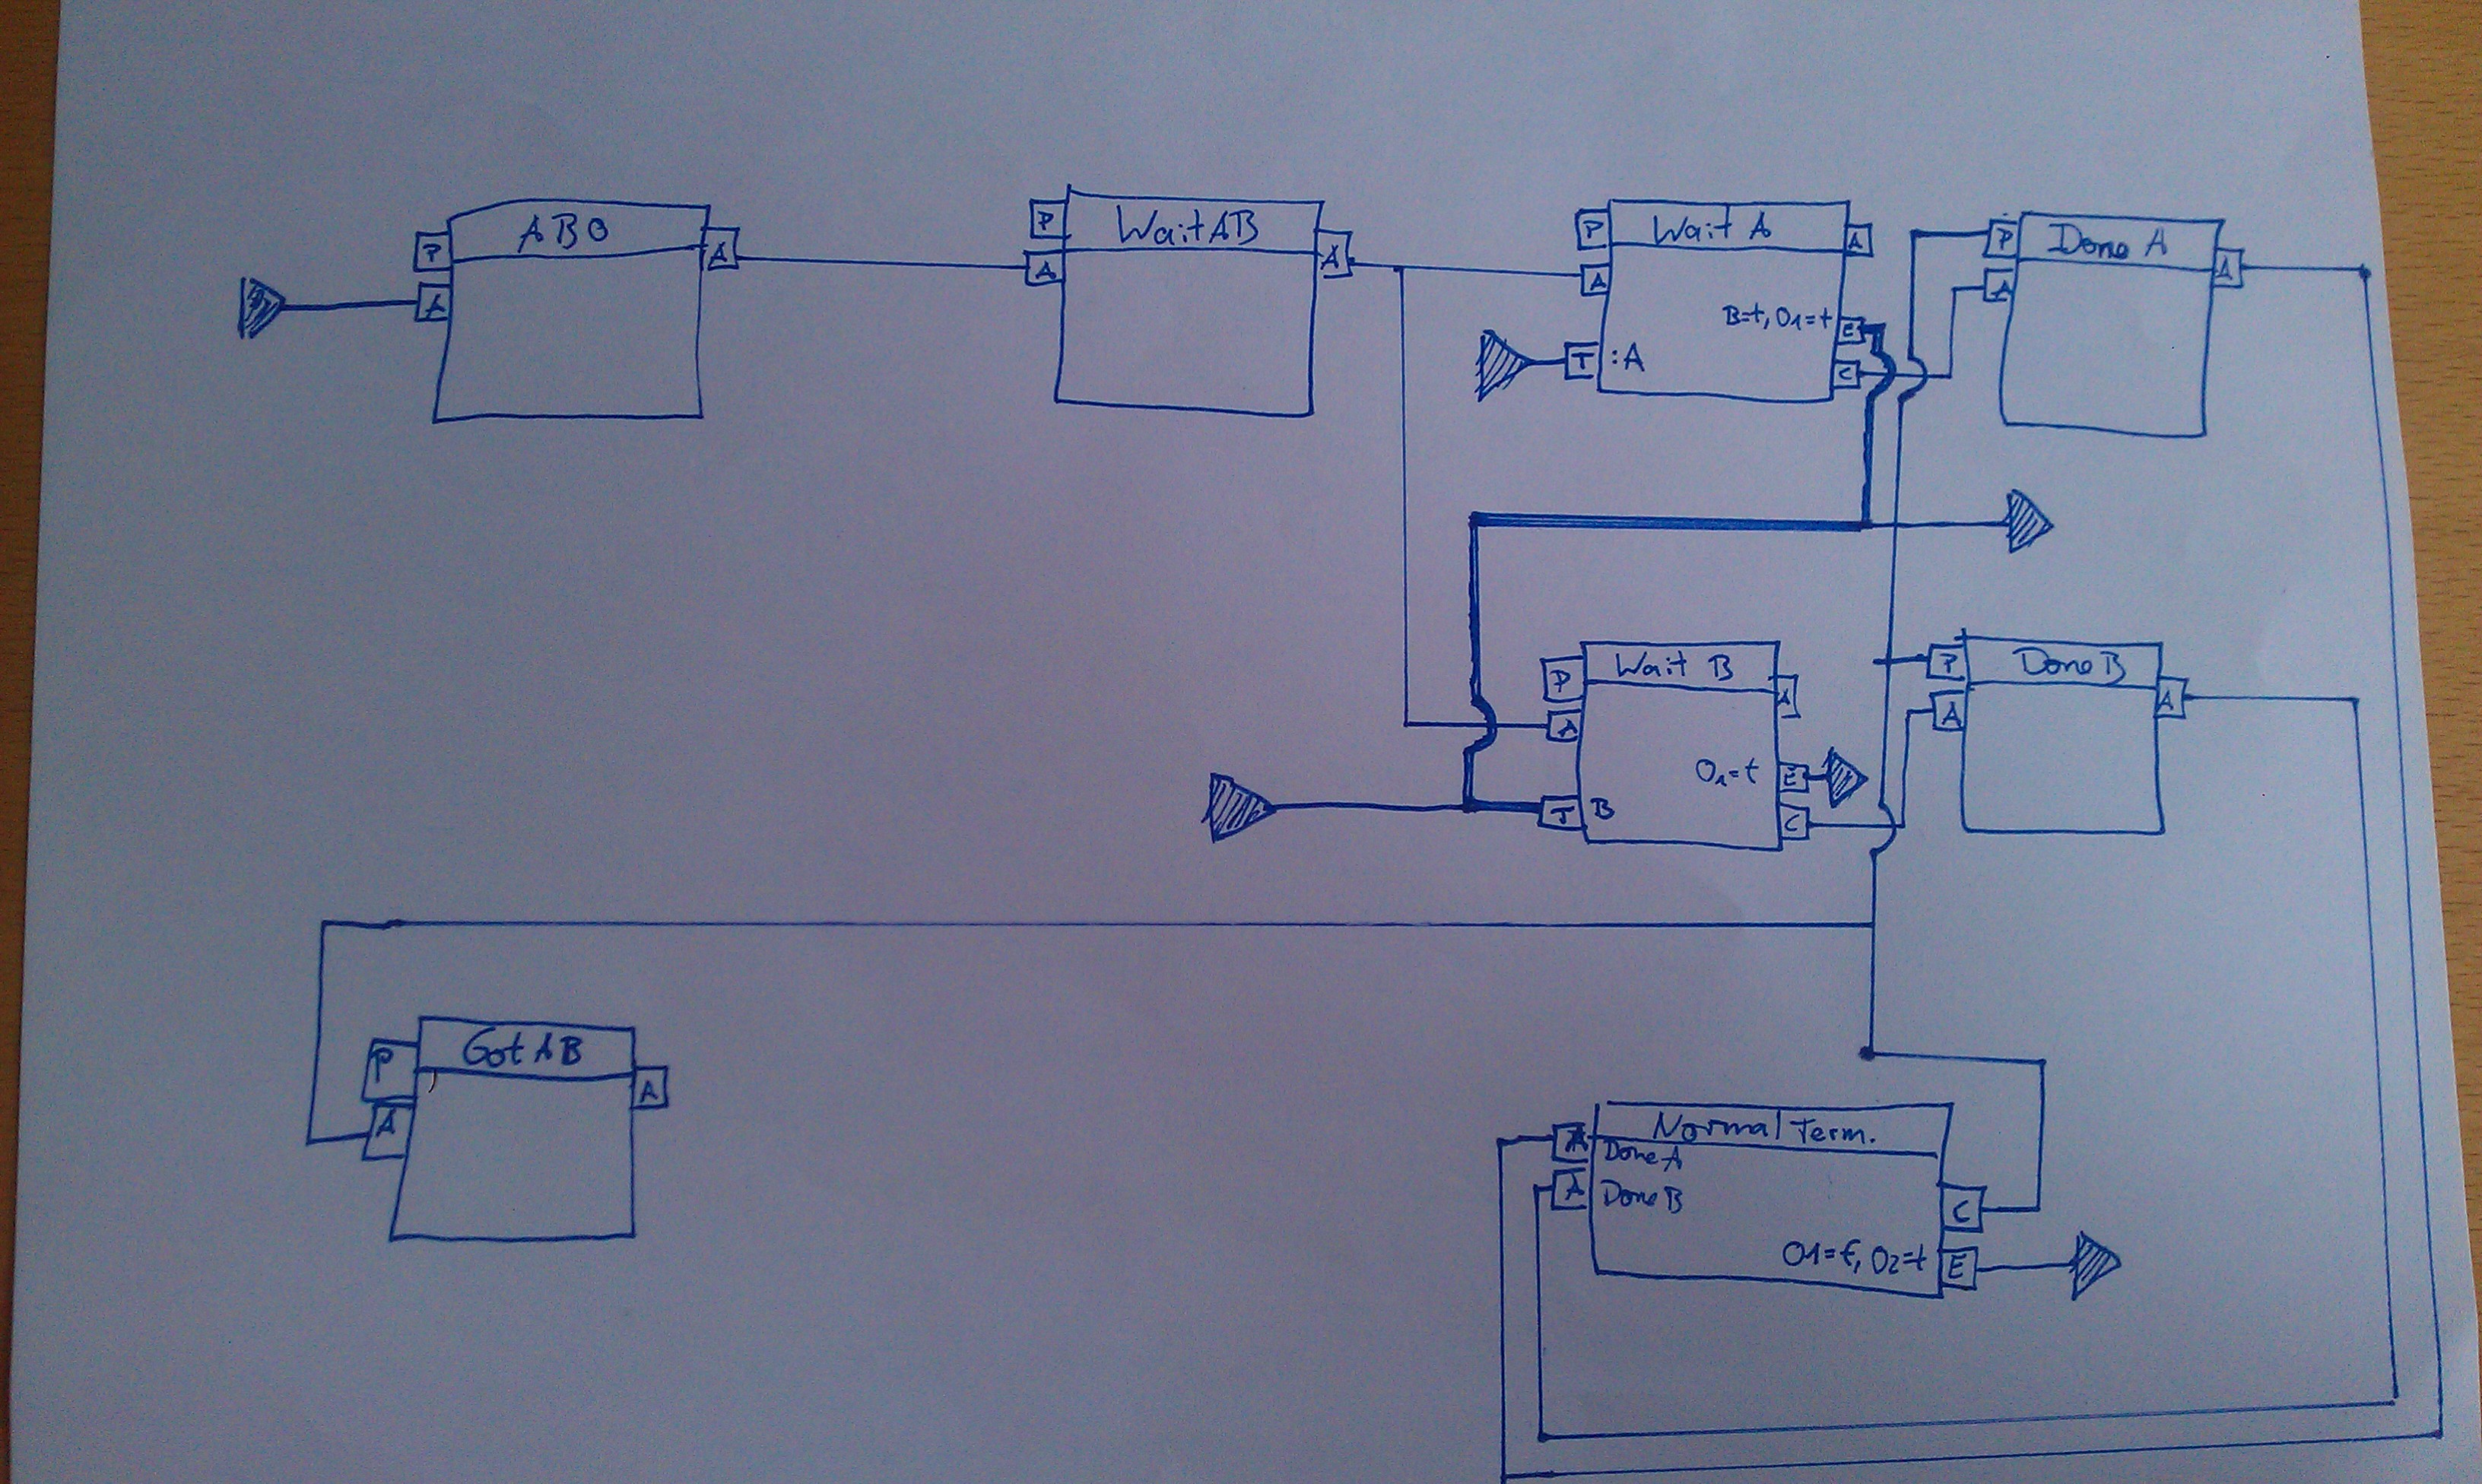 ABO
P
A
A
Wait AB
P
A
A
Wait A
P
A
A
B=t, O1=t
E
T
:A
C
Done A
P
A
A
Wait B
P
A
A
O1=t
E
T
B
C
Done B
P
A
A
Got AB
P
A
A
Normal Term.
A
Done A
A
Done B
C
O1=t, O2=t
E